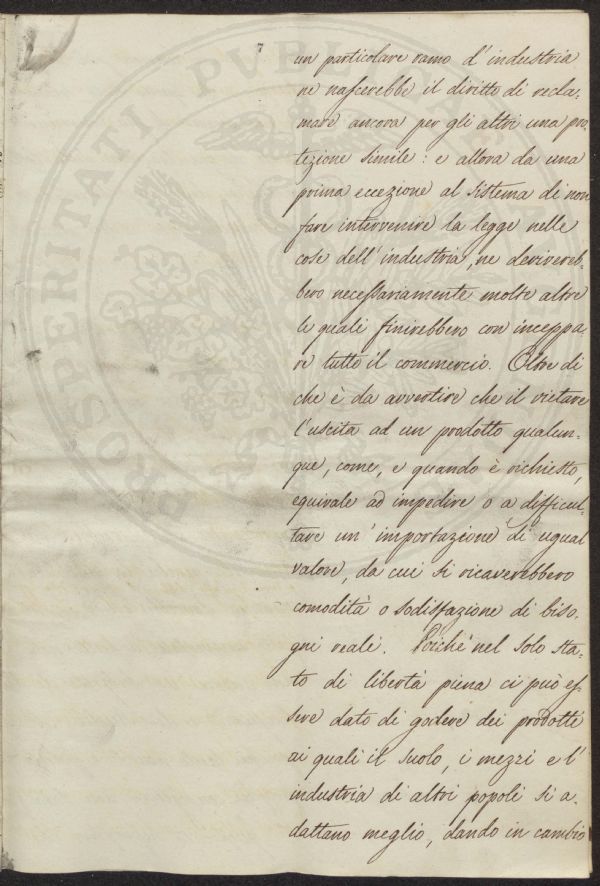 7
un particolare ramo d'industria
ne nascerebbe il diritto di recla-
mare ancora per gli altri una pro-
tezione simile: e allora da una
prima eccezione al sistema di non
fare intervenire la legge nelle
cose dell'industria, ne derivereb-
bero necessariamente molte altre
le quali finirebbero con inceppa-
re tutto il commercio. Oltre di
che è da avvertire che il vietare
l'uscita ad un prodotto qualun-
que, come, e quando è richiesto,
equivale ad impedire o a difficul-
tare un'importazione di ugual
valore, da cui si ricaverebbero
comodità o sodisfazione di biso-
gni reali. Poichè nel solo sta-
to di libertà piena ci può es-
sere dato di godere dei prodotti
ai quali il suolo, i mezzi e l'
industria di altri popoli si a-
dattano meglio, dando in cambio
PROSPERITATI PVBLICAE